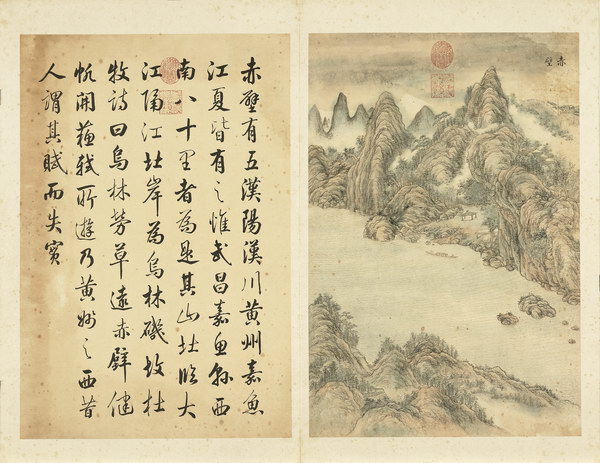 赤壁
赤壁有五漢陽漢川黄州嘉魚
江夏皆有之惟武昌嘉魚縣西
南八十里者為是其山北臨大
江隔江北岸為烏林磯故杜
牧詩曰烏林芳草遠赤壁健
帆開蘇軾所遊乃黄州之西昔
人謂其賦而失實